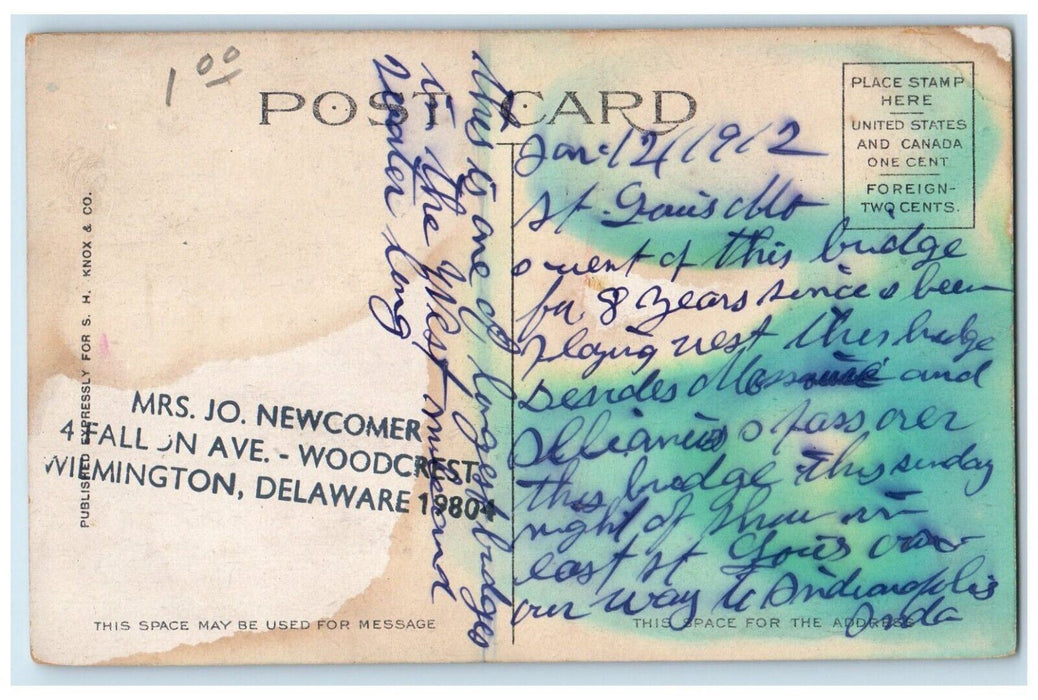 1 00
POST CARD
PLACE STAMP
HERE
UNITED STATES
AND CANADA
ONE CENT
FOREIGN-
TWO CENTS.
Jan-12/1912
St. Louis Mo
went of this bridge
for 8 years since been
playing west this bridge
besides and
pass over
this bridge this sunday
night of show in
east st Louis
our way to Indianoplis
Inda
this is one of longest bridges
in the West and
long
MRS. JO. NEWCOMER
4 FALL ON AVE. - WOODCREST
WILMINGTON, DELAWARE 19804
PUBLISHED EXPRESSLY FOR S. H. KNOX & CO.
THIS SPACE MAY BE USED FOR MESSAGE
THIS SPACE FOR THE ADDRESS